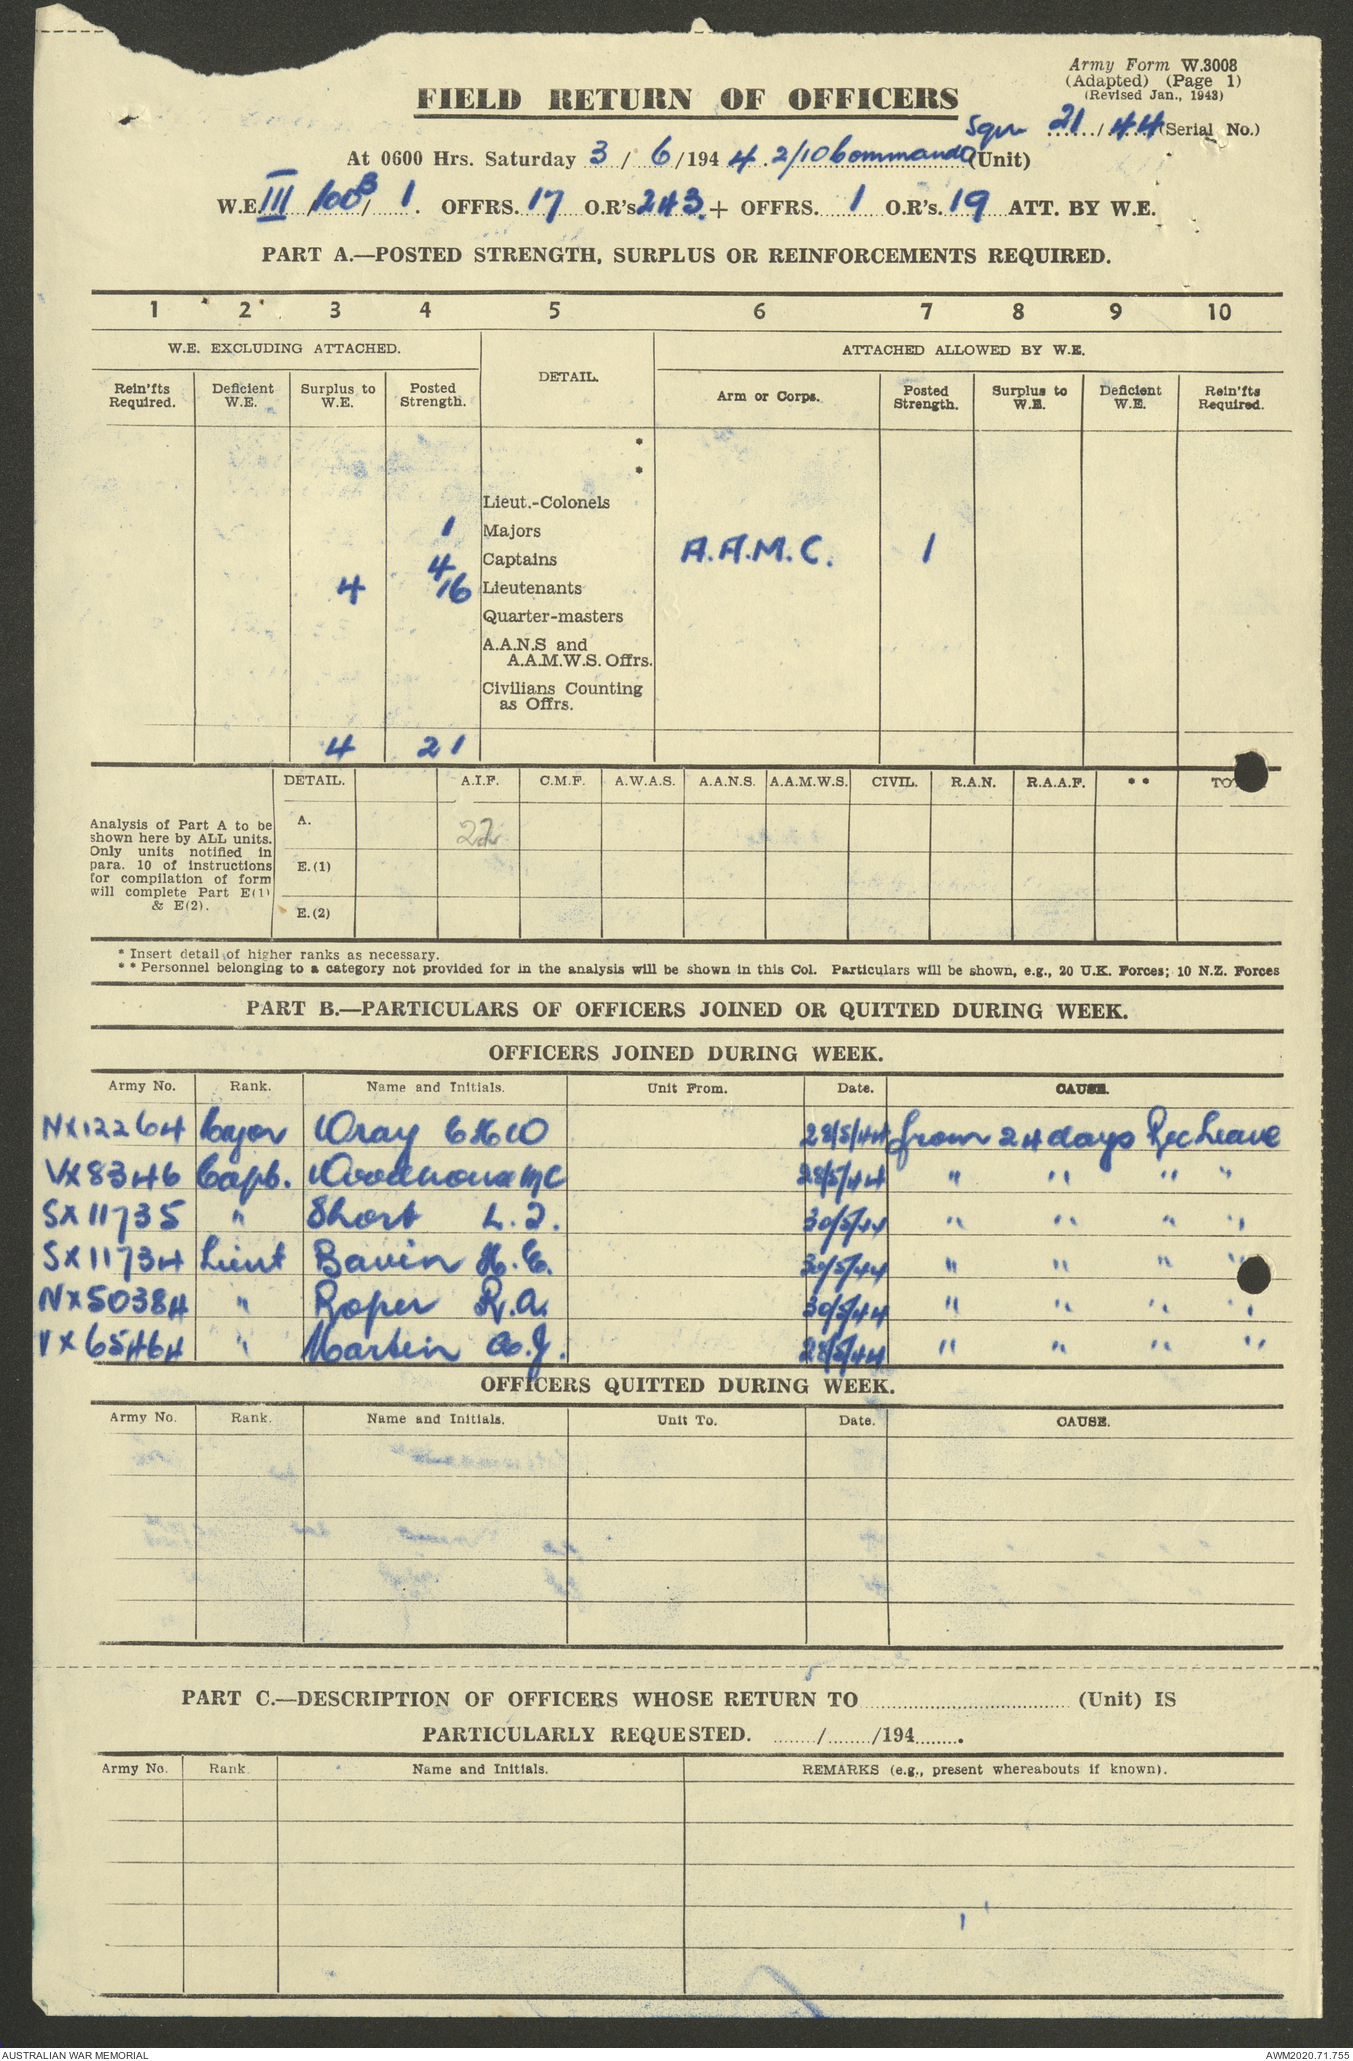 Army Form W.3008
(Adapted) (Page 1)
(Revised Jan., 1943)
FIELD RETURN OF OFFICERS
Sqn 21/44 (Serial No.)
At 0600 Hrs. Saturday 3/6/1944. 2/10 Commando (Unit)
W.E. III/100B/1. OFFRS. 17 O.R's 243. + OFFRS. 1 O.R's. 19 ATT. BY W.E.
PART A.—POSTED STRENGTH, SURPLUS OR REINFORCEMENTS REQUIRED.
1 2 3 4 5 6 7 8 9 10
W.E. EXCLUDING ATTACHED. DETAIL. ATTACHED ALLOWED BY W.E.
Rein'fts Required. Deficient W.E. Surplus to W.E. Posted Strength. Arm or Corps. Posted Strength. Surplus to W.E. Deficient W.E. Rein'fts Required.
*
*
Lieut.-Colonels
1 Majors
4 Captains A.A.M.C. 1
4 16 Lieutenants
Quarter-masters
A.A.N.S and
A.A.M.W.S. Offrs.
Civilians Counting
as Offrs.
4 21
DETAIL. A.I.F. C.M.F. A.W.A.S. A.A.N.S. A.A.M.W.S. CIVIL. R.A.N. R.A.A.F. * *
Analysis of Part A to be
shown here by ALL units.
Only units notified in
para. 10 of instructions
for compilation of form
will complete Part E(1)
& E(2).
A. 22
E.(1)
E.(2)
* Insert detail of higher ranks as necessary.
* * Personnel belonging to a category not provided for in the analysis will be shown in this Col. Particulars will be shown, e.g., 20 U.K. Forces; 10 N.Z. Forces
PART B.—PARTICULARS OF OFFICERS JOINED OR QUITTED DURING WEEK.
OFFICERS JOINED DURING WEEK.
Army No. Rank. Name and Initials. Unit From. Date. CAUSE.
NX12264 Major Wray CHW 28/5/44 from 24 days Rec Leave
VX8346 Capt. MC 28/5/44 " " " "
SX11735 " Short L.J. 30/5/44 " " " "
SX11734 Lieut Bavin H.C. 30/5/44 " " " "
NX50384 " Roper R.A. 30/5/44 " " " "
VX65464 " Martin A.J. 28/5/44 " " " "
OFFICERS QUITTED DURING WEEK.
Army No. Rank. Name and Initials. Unit To. Date. CAUSE.
PART C.—DESCRIPTION OF OFFICERS WHOSE RETURN TO .......... (Unit) IS
PARTICULARLY REQUESTED. ......../......../194........
Army No. Rank. Name and Initials. REMARKS (e.g., present whereabouts if known).
AUSTRALIAN WAR MEMORIAL AWM2020.71.755